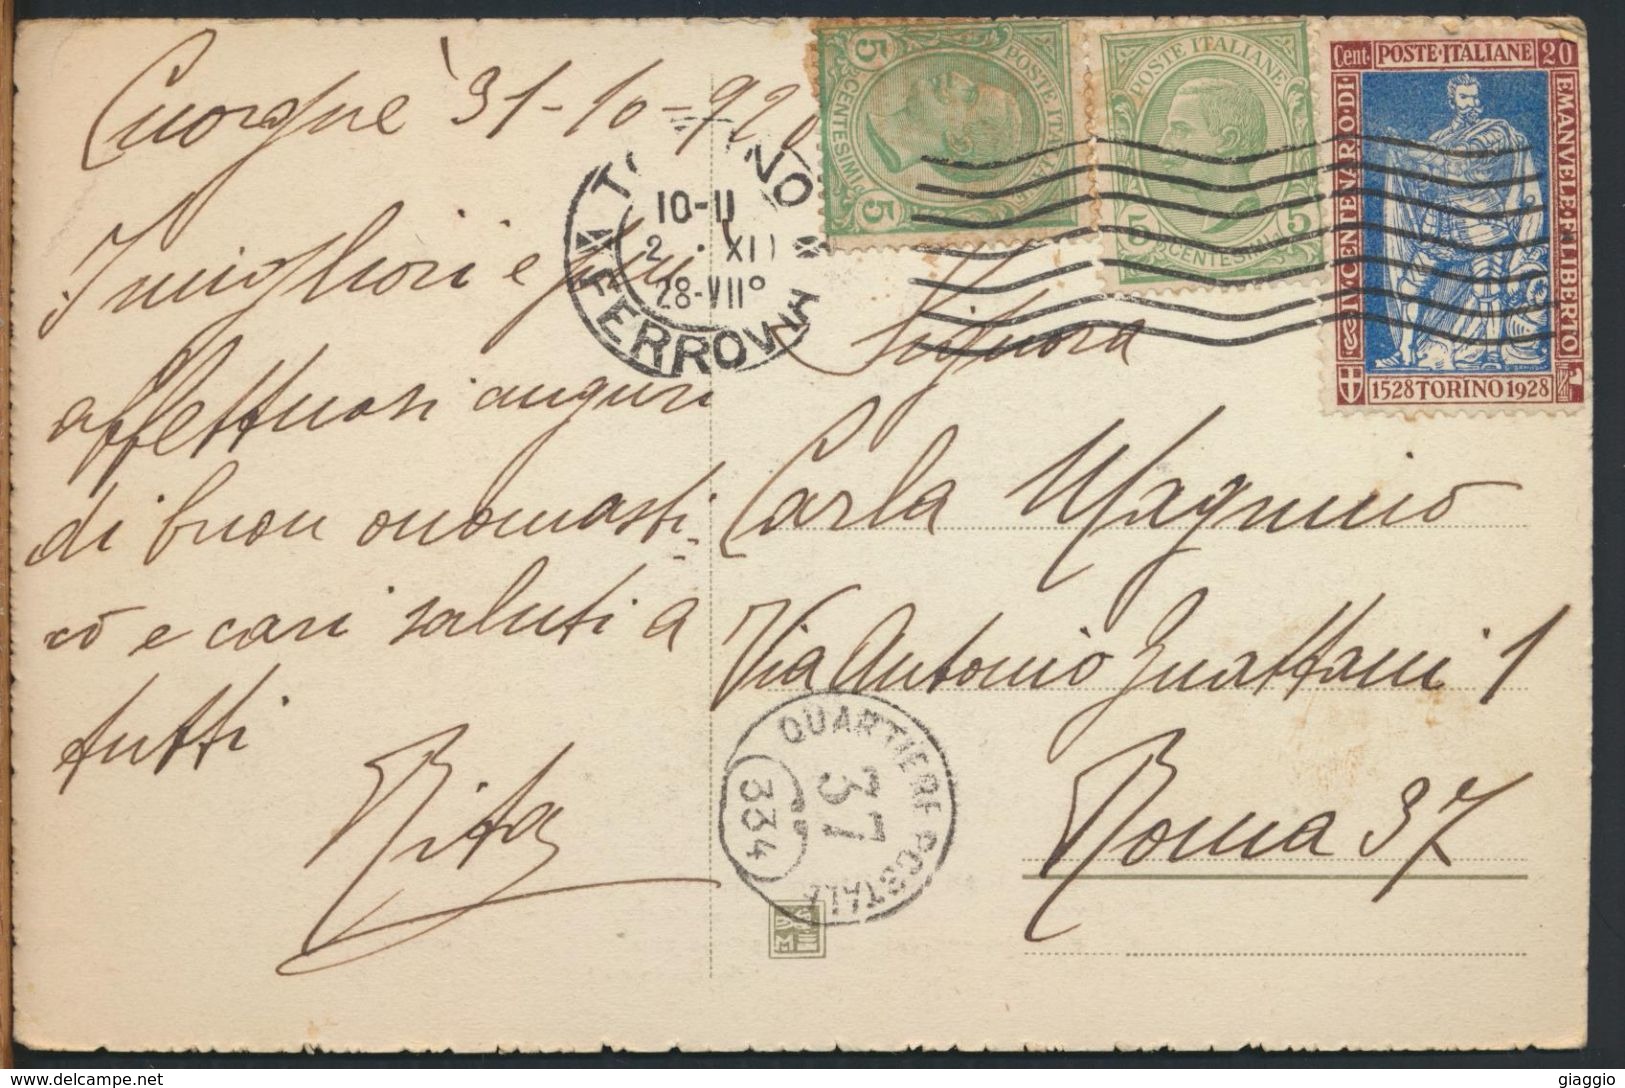 Cuorgnè 31-10-928
I migliori e più
affettuosi auguri
di buon onomasti-
co e cari saluti a
tutti
Rita
TORINO
10-11
2 · XI
28-VII°
FERROVIA
5 CENTESIMI 5
POSTE ITALIANE
POSTE ITALIANE
5 CENTESIMI 5
Cent. POSTE·ITALIANE 20
IV·CENTENARIO·DI·
EMANVELE·FILIBERTO
1528 TORINO 1928
Signora
Carla Magnino
Via Antonio Guattani 1
Roma 37
QUARTIERE POSTALE
37
334
M
© delcampe.net
giaggio